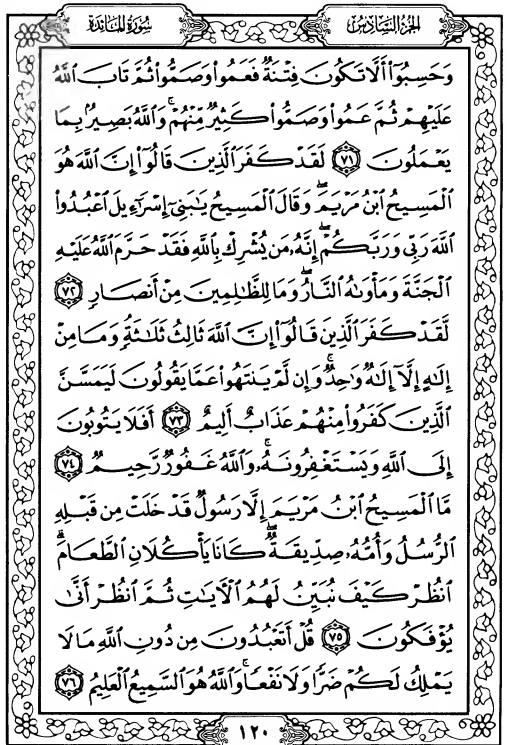 سُورَةُ المَائِدَة
الجُزءُ السَّادِسُ
وَحَسِبُوٓا۟ أَلَّا تَكُونَ فِتْنَةٌ فَعَمُوا۟ وَصَمُّوا۟ ثُمَّ تَابَ ٱللَّهُ
عَلَيْهِمْ ثُمَّ عَمُوا۟ وَصَمُّوا۟ كَثِيرٌ مِّنْهُمْ ۚ وَٱللَّهُ بَصِيرٌۢ بِمَا
يَعْمَلُونَ ٧١ لَقَدْ كَفَرَ ٱلَّذِينَ قَالُوٓا۟ إِنَّ ٱللَّهَ هُوَ
ٱلْمَسِيحُ ٱبْنُ مَرْيَمَ ۖ وَقَالَ ٱلْمَسِيحُ يَـٰبَنِىٓ إِسْرَٰٓءِيلَ ٱعْبُدُوا۟
ٱللَّهَ رَبِّى وَرَبَّكُمْ ۖ إِنَّهُۥ مَن يُشْرِكْ بِٱللَّهِ فَقَدْ حَرَّمَ ٱللَّهُ عَلَيْهِ
ٱلْجَنَّةَ وَمَأْوَىٰهُ ٱلنَّارُ ۖ وَمَا لِلظَّـٰلِمِينَ مِنْ أَنصَارٍ ٧٢
لَّقَدْ كَفَرَ ٱلَّذِينَ قَالُوٓا۟ إِنَّ ٱللَّهَ ثَالِثُ ثَلَـٰثَةٍ ۘ وَمَا مِنْ
إِلَـٰهٍ إِلَّآ إِلَـٰهٌ وَٰحِدٌ ۚ وَإِن لَّمْ يَنتَهُوا۟ عَمَّا يَقُولُونَ لَيَمَسَّنَّ
ٱلَّذِينَ كَفَرُوا۟ مِنْهُمْ عَذَابٌ أَلِيمٌ ٧٣ أَفَلَا يَتُوبُونَ
إِلَى ٱللَّهِ وَيَسْتَغْفِرُونَهُۥ ۚ وَٱللَّهُ غَفُورٌ رَّحِيمٌ ٧٤
مَّا ٱلْمَسِيحُ ٱبْنُ مَرْيَمَ إِلَّا رَسُولٌ قَدْ خَلَتْ مِن قَبْلِهِ
ٱلرُّسُلُ وَأُمُّهُۥ صِدِّيقَةٌ ۖ كَانَا يَأْكُلَانِ ٱلطَّعَامَ ۗ
ٱنظُرْ كَيْفَ نُبَيِّنُ لَهُمُ ٱلْـَٔايَـٰتِ ثُمَّ ٱنظُرْ أَنَّىٰ
يُؤْفَكُونَ ٧٥ قُلْ أَتَعْبُدُونَ مِن دُونِ ٱللَّهِ مَا لَا
يَمْلِكُ لَكُمْ ضَرًّا وَلَا نَفْعًا ۚ وَٱللَّهُ هُوَ ٱلسَّمِيعُ ٱلْعَلِيمُ ٧٦
١٢٠